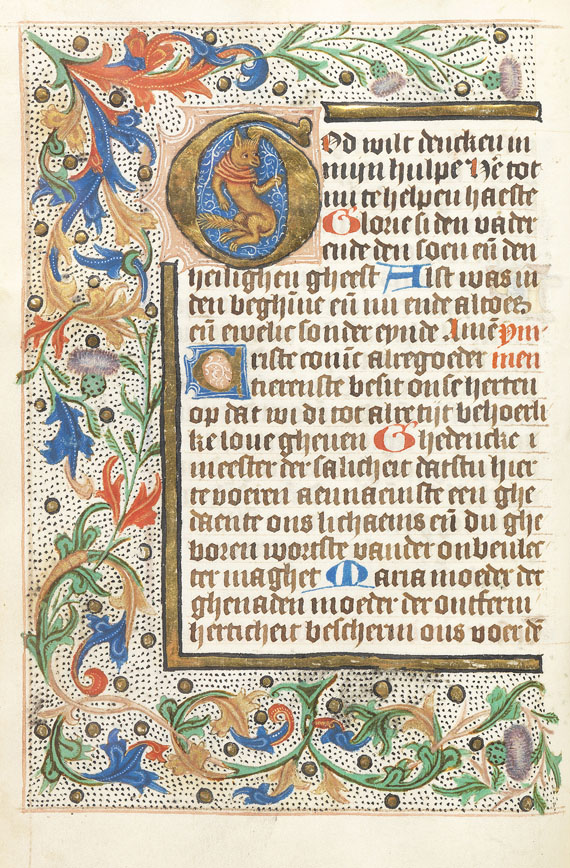 God wilt dencken in
mijn hulpe He tot
mi te helpen haeste
Glorie si den vader
ende den soen en̄ den
heilighen gheest Alst was in
den beghīne en̄ nu ende altoes
en̄ ewelic sonder eynde Amē ym-
Criste coninc alregoeder men
tierenste besit onse herten
op dat wi di tot alre tijt behoerli
ke love gheven Ghedencke i
meester der salicheit datstu hier
te voeren aennaemste een ghe
daente ons lichaems en̄ du ghe
boren wortste vander onbevlec
ter maghet Maria moeder der
ghenaden moeder der ontferm
herticheit bescherm ons voer dē